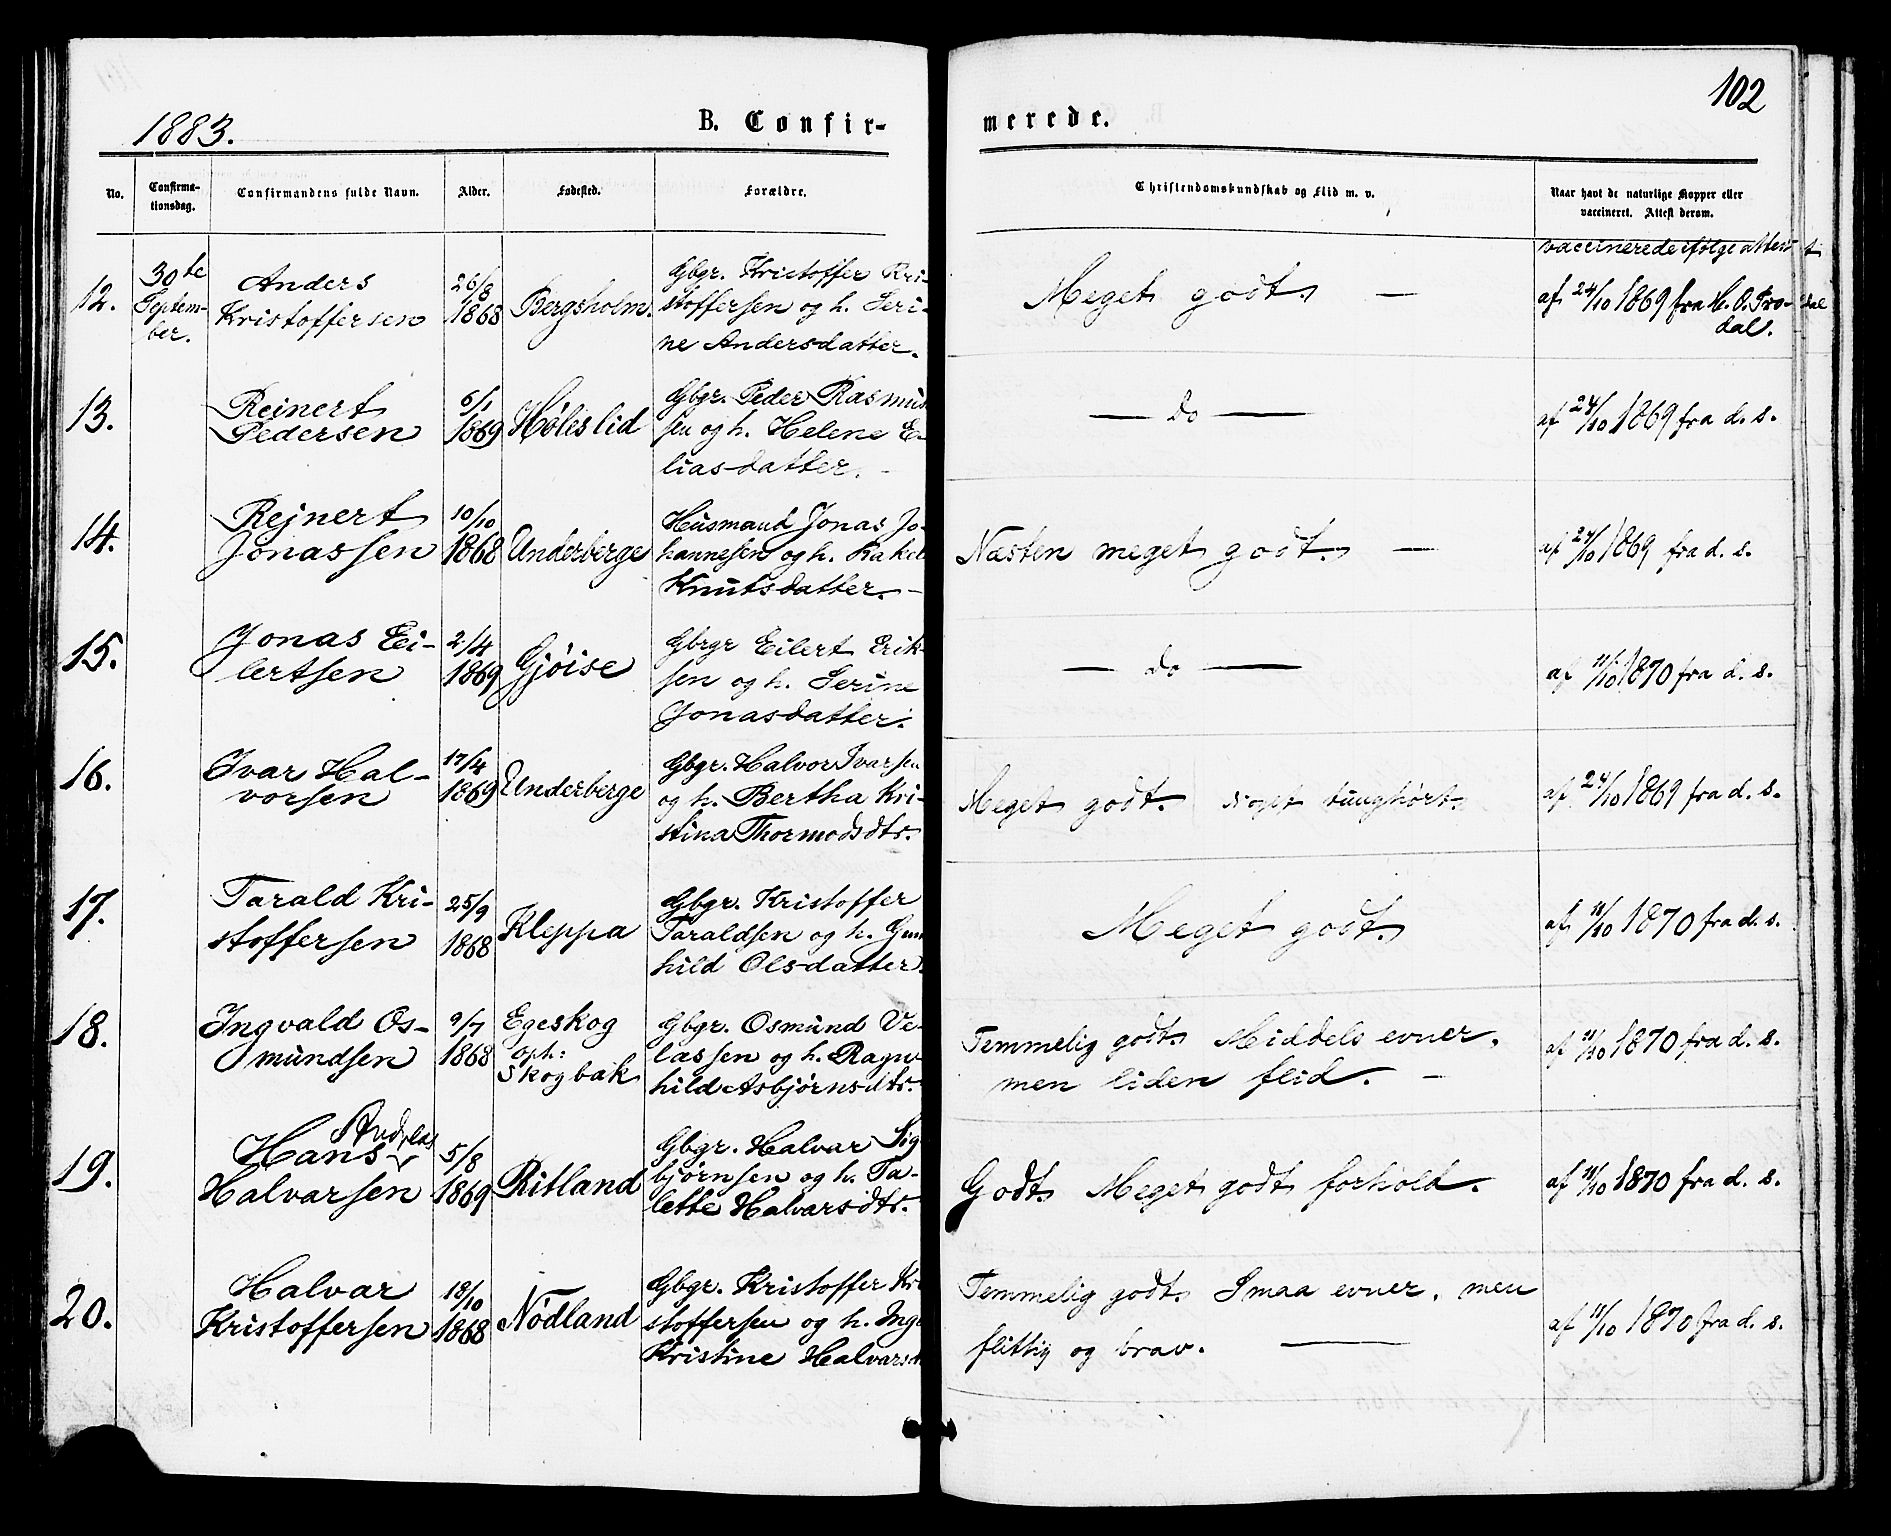 102
1883.
B. Confir-
merede.
No.
Confirma-
tionsdag.
Confirmandens fulde Navn.
Alder.
Fødested.
Forældre.
Christendomskundskab og Flid m. v.
Naar havt de naturlige Kopper eller
vaccineret. Attest derom.
12.
30te
Septem-
ber.
Anders
Kristoffersen
26/8
1868
Bergsholm.
Gbgr. Kristoffer Kri-
stoffersen og h. Seri-
ne Andersdatter.
Meget godt. —
vaccinerede ifølge attest
af 24/10 1869 fra H. O. Tro-
dal.
13.
Reinert
Pedersen
6/1
1869
Høleslid
Gbgr. Peder Rasmus
sen og h. Helene E-
liasdatter. -
— do —
af 24/10 1869 fra d. s.
14.
Rejnert
Jonassen
10/10
1868
Underberge
Husmand Jonas Jo-
hannesen og h. Rakel
Knutsdatter. -
Næsten meget godt. —
af 24/10 1869 fra d. s.
15.
Jonas Ei-
lertsen
2/4
1869
Gjøise
Gbrgr Eilert Erik-
sen og h. Serine
Jonasdatter.
— do —
af 11/10 1870 fra d. s.
16.
Ivar Hal-
vorsen
17/4
1869
Underberge
Gbgr. Halvor Ivarsen
og h. Bertha Kri-
stina Thormodsdtr.
Meget godt. Noget tunghørt.
af 24/10 1869 fra d. s.
17.
Tarald Kri-
stoffersen
25/9
1868
Kleppa
Gbgr. Kristoffer
Taraldsen og h. Gun
hild Olsdatter.
Meget godt.
af 11/10 1870 fra d. s.
18.
Ingvald Os-
mundsen
9/7
1868
Egeskog
oph:
Skogbak
Gbgr. Osmund Ve-
lassen og h. Ragn
hild Asbjørnsdtr.
Temmelig godt. Middels evner,
men liden flid. -
af 11/10 1870 fra d. s.
19.
Andreas
Hans
Halvarsen
5/8
1869
Ritland
Gbgr. Halvar Sig
bjørnsen og h. Ta-
lette Halvarsdtr.
Godt. Meget godt forhold.
af 11/10 1870 fra d. s.
20.
Halvar
Kristoffersen
18/10
1868
Nødland
Gbgr. Kristoffer Kri
stoffersen og h. Inge
Kristine Halvarsd
Temmelig godt. Smaa evner, men
flittig og brav. —
af 11/10 1870 fra d. s.